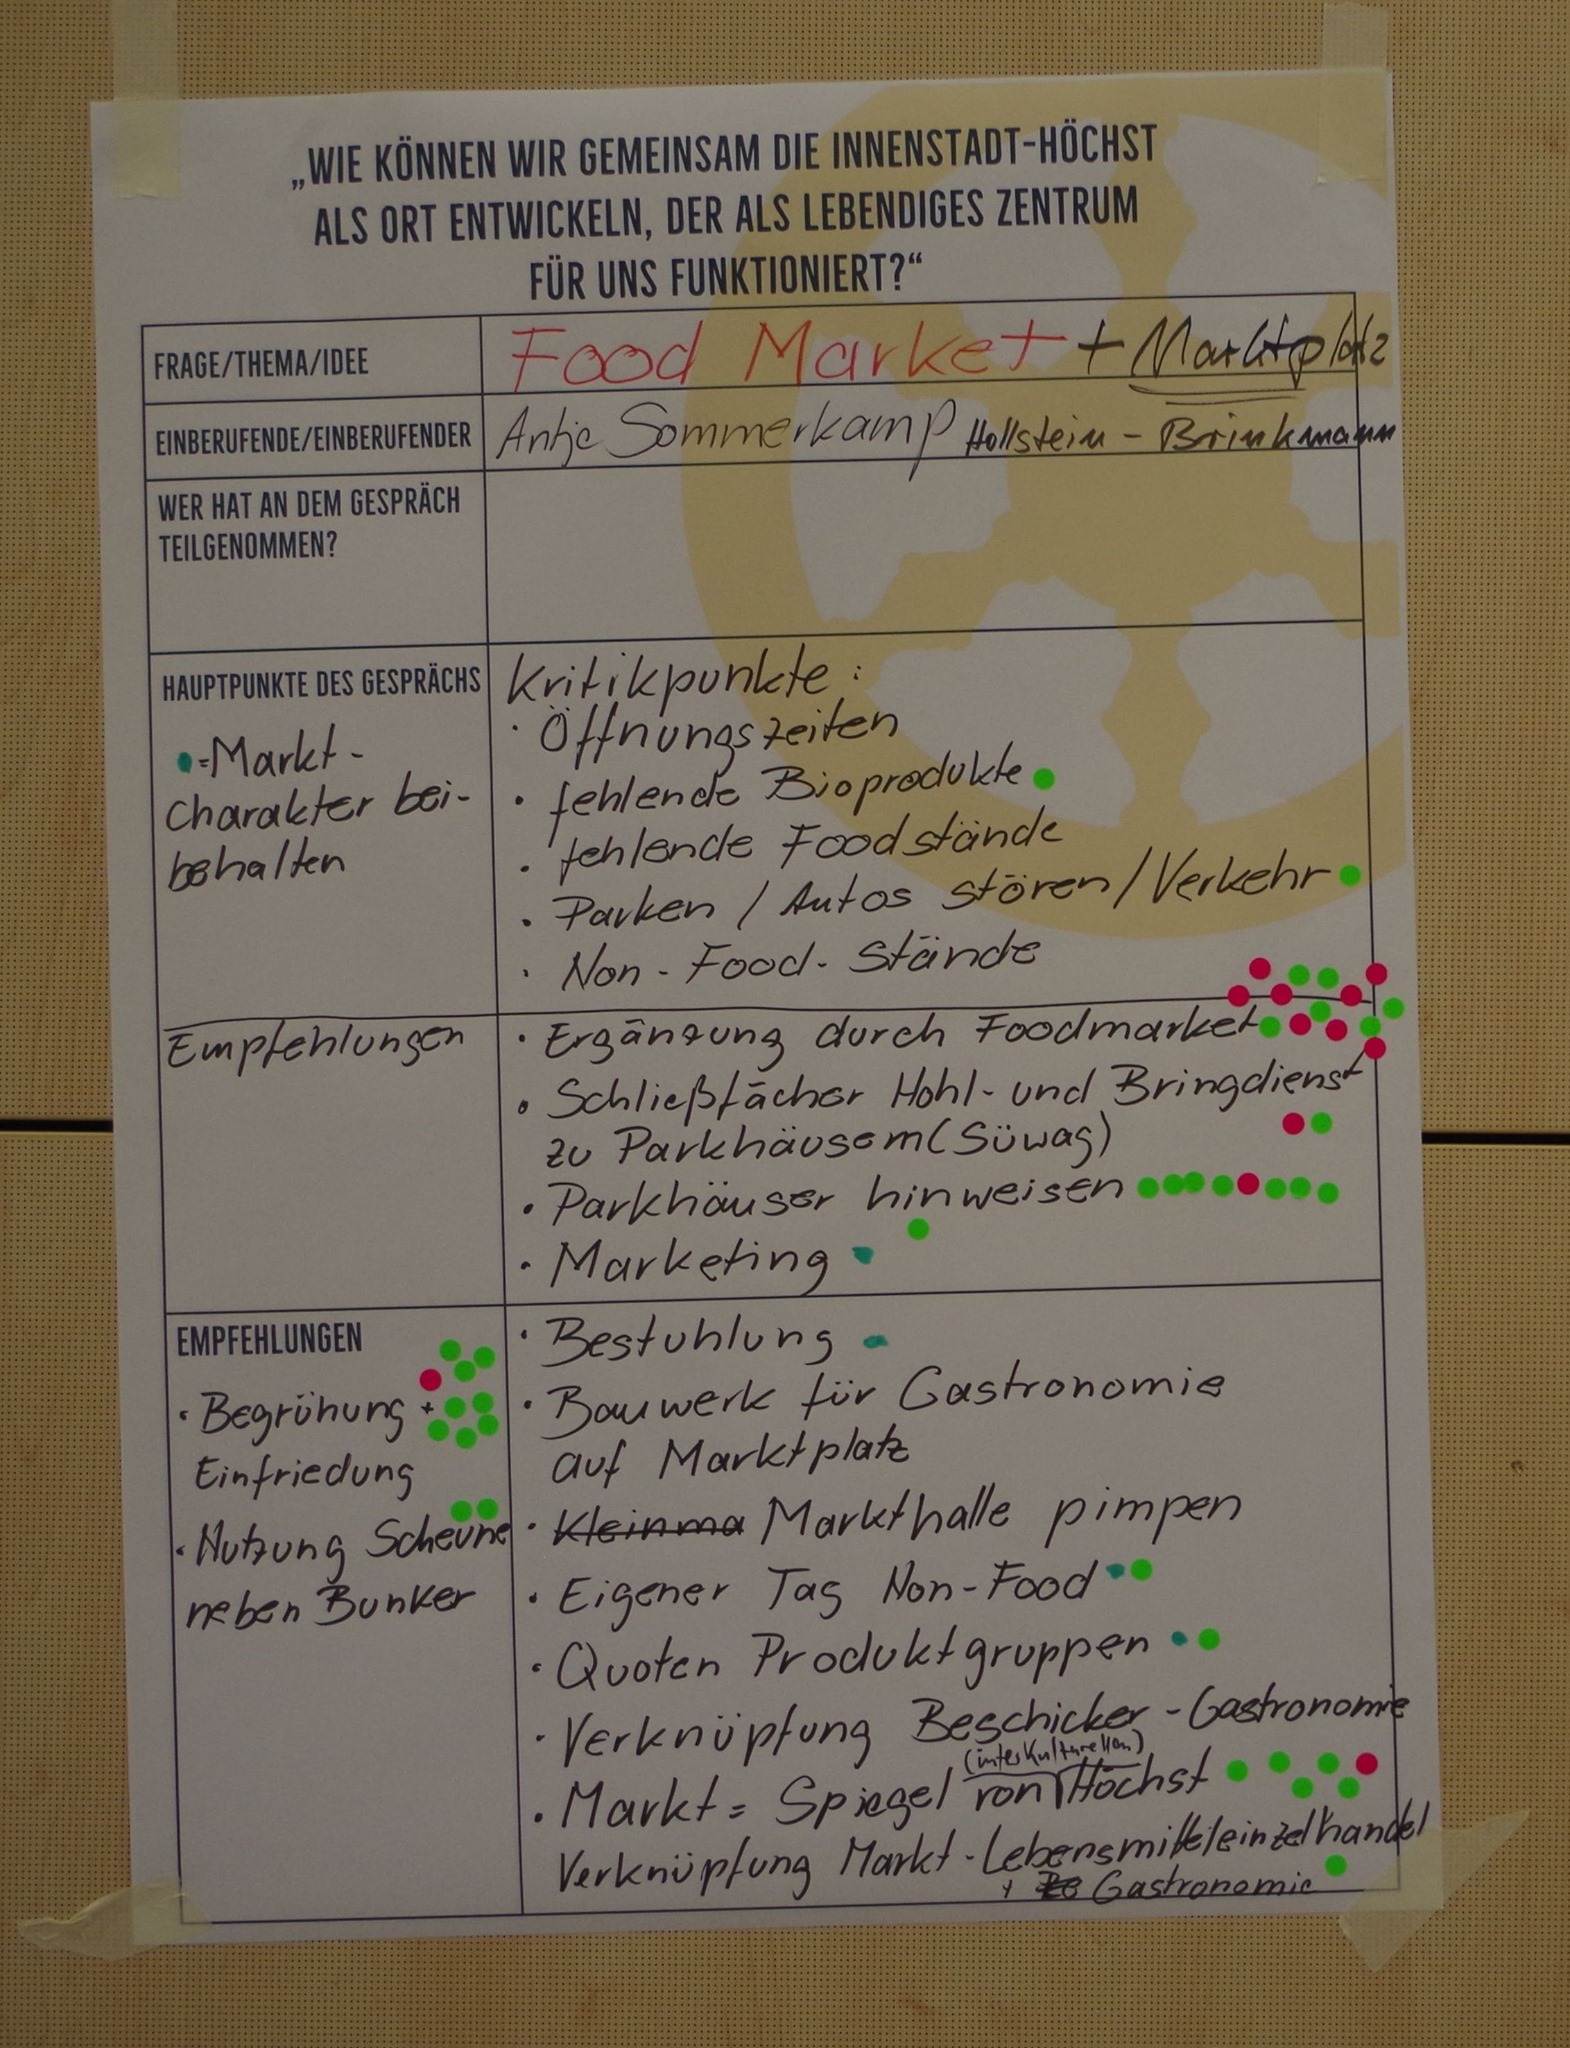 „WIE KÖNNEN WIR GEMEINSAM DIE INNENSTADT-HÖCHST
ALS ORT ENTWICKELN, DER ALS LEBENDIGES ZENTRUM
FÜR UNS FUNKTIONIERT?“
FRAGE/THEMA/IDEE
Food Market + Marktplatz
EINBERUFENDE/EINBERUFENDER
Antje Sommerkamp Hollstein - Brinkmann
WER HAT AN DEM GESPRÄCH
TEILGENOMMEN?
HAUPTPUNKTE DES GESPRÄCHS
= Markt-
charakter bei-
behalten
Kritikpunkte:
· Öffnungszeiten
· fehlende Bioprodukte
· fehlende Foodstände
· Parken / Autos stören / Verkehr
· Non - Food - Stände
Empfehlungen
· Ergänzung durch Foodmarket
· Schließfächer Hohl- und Bringdienst
zu Parkhäusern (Süwag)
· Parkhäuser hinweisen
· Marketing
EMPFEHLUNGEN
· Begrünung +
Einfriedung
· Nutzung Scheune
neben Bunker
· Bestuhlung
· Bauwerk für Gastronomie
auf Marktplatz
· Kleinma Markthalle pimpen
· Eigener Tag Non-Food
· Quoten Produktgruppen
· Verknüpfung Beschicker - Gastronomie
(interkulturellen)
· Markt = Spiegel von Höchst
Verknüpfung Markt - Lebensmitteleinzelhandel
Gastronomie